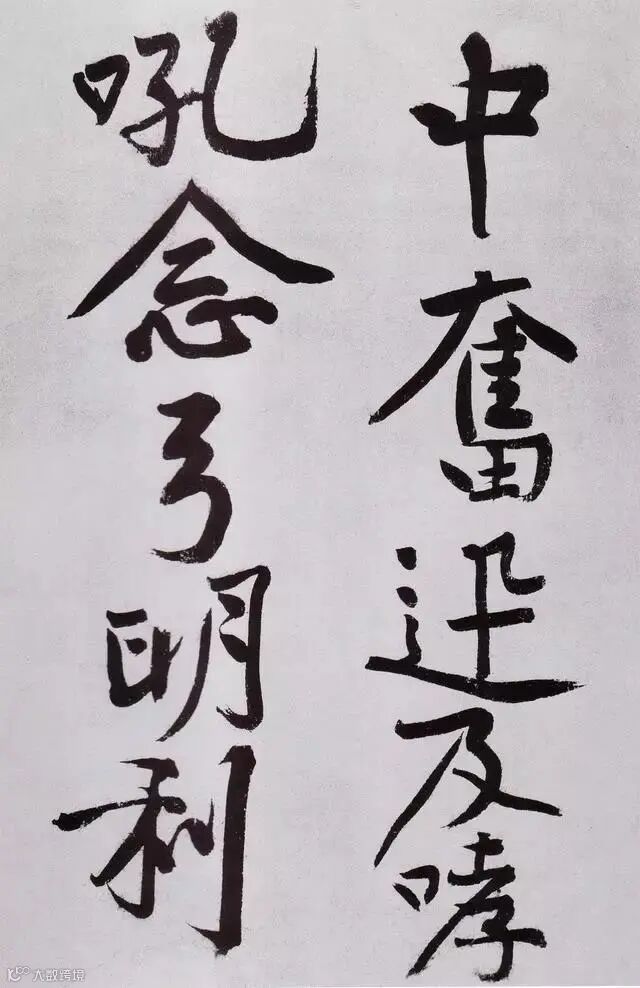 中奮迅及哮
吼念弓明利
大数跨境